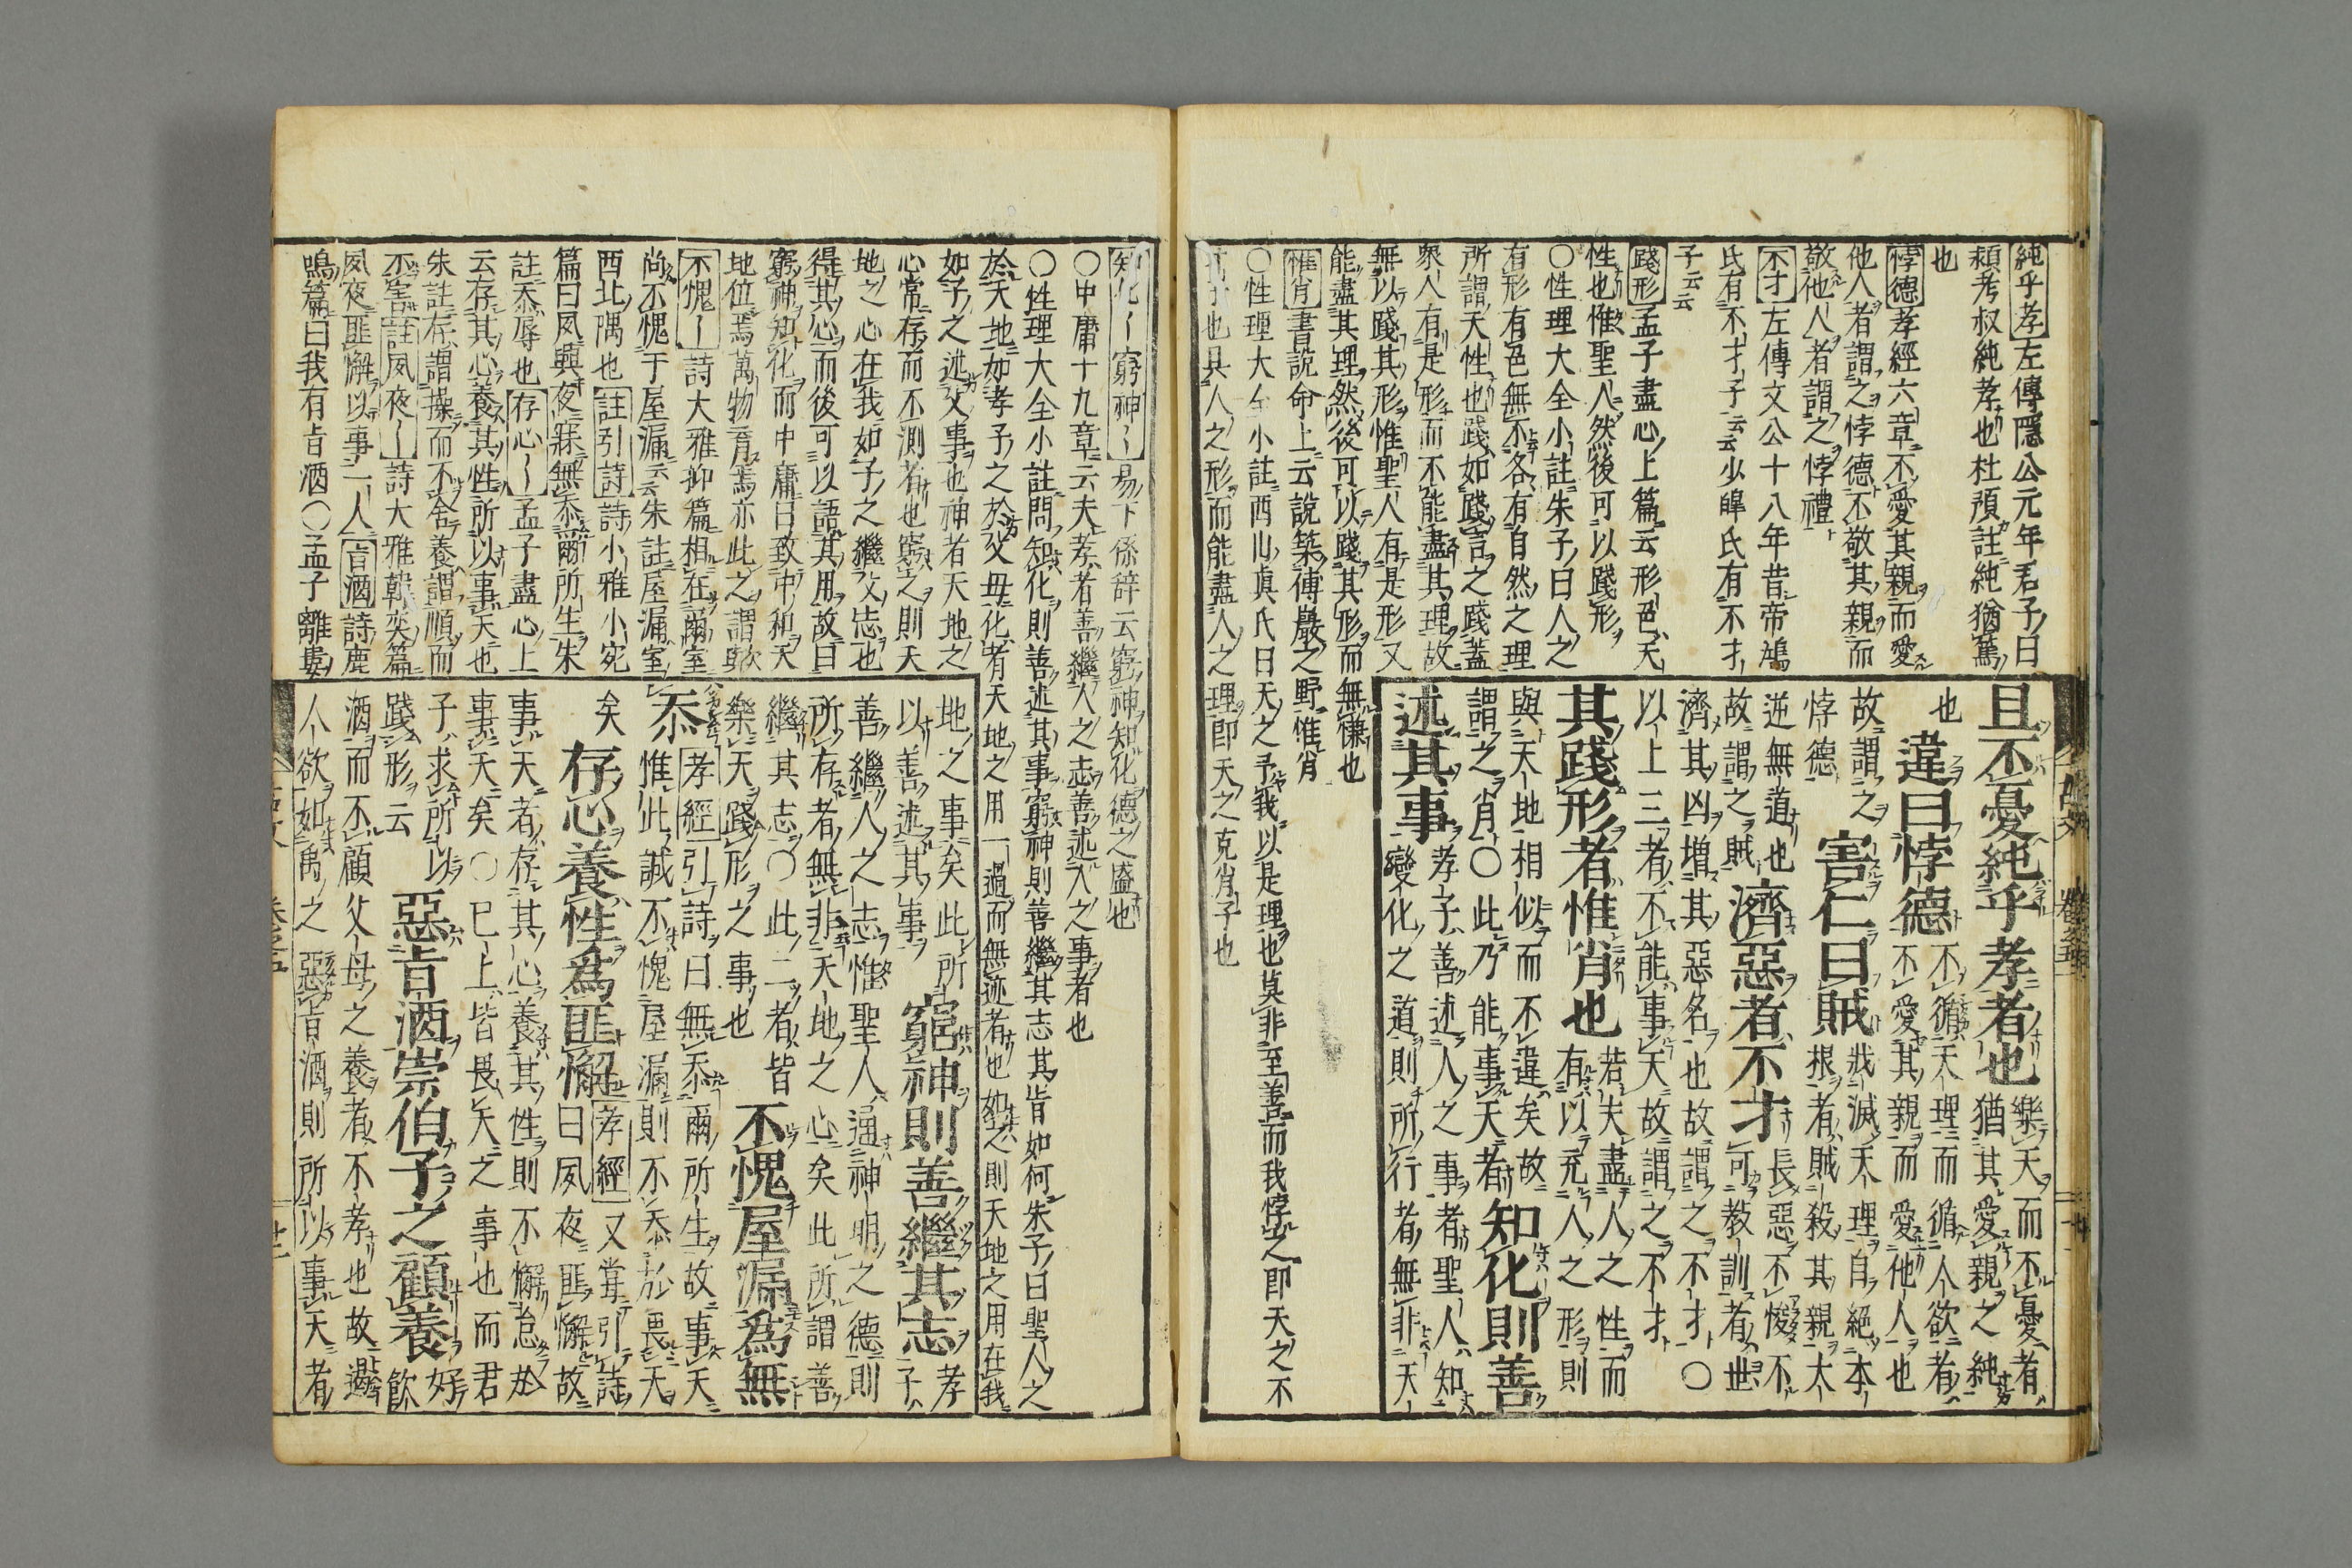 純乎孝左傳隱公元年君子曰
頴考叔純孝也杜預註純猶篤
也
悖德孝經六章不愛其親而愛
他人者謂之悖德不敬其親而
敬他人者謂之悖禮
不才左傳文公十八年昔帝鴻
氏有不才子云云少皥氏有不才
子云云
踐形孟子盡心上篇云形色天
性也惟聖人然後可以踐形
○性理大全小註朱子曰人之
有形有色無不各有自然之理
所謂天性也踐如踐言之踐蓋
衆人有是形而不能盡其理故
無以踐其形惟聖人有是形又
能盡其理然後可以踐其形而無慊也
惟肖書說命上云說築傅巖之野惟肖
○性理大全小註西山眞氏曰天之予我以是理也莫非至善而我悖之即天之不
才子也具人之形而能盡人之理即天之克肖子也
且不憂純乎孝者也樂天而不憂者
猶其愛親之純
也違曰悖德不循天理而循人欲者
不愛其親而愛他人也
故謂之悖德害仁曰賊戕滅天理自絕本
根者賊殺其親大
逆無道也故謂之賊濟惡者不才長惡不悛不
可敎訓者世
濟其凶增其惡名也故謂之不才○
以上三者不能事天故謂之不才
其踐形者惟肖也若夫盡人之性而
有以充人之形則
與天地相似而不違矣故
謂之肖○此乃能事天者知化則善
述其事孝子善述人之事者聖人知
變化之道則所行者無非天
知化〡窮神〡易下係辞云窮神知化德之盛也
○中庸十九章云夫孝者善繼人之志善述人之事者也
○性理大全小註問知化則善述其事窮神則善繼其志其旨如何朱子曰聖人之
於天地如孝子之於父母化者天地之用一過而無迹者也知之則天地之用在我
如子之述父事也神者天地之
心常存而不測者也窮之則天
地之心在我如子之繼父志也
得其心而後可以語其用故曰
窮神知化而中庸曰致中和天
地位焉萬物育焉亦此之謂歟
不愧〡詩大雅抑篇相在爾室
尚不愧于屋漏云云朱註屋漏室
西北隅也註引詩詩小雅小宛
篇曰夙興夜寐無忝爾所生朱
註忝辱也存心〡孟子盡心上
云存其心養其性所以事天也
朱註存謂操而不舍養謂順而
不害註夙夜〡詩大雅韓奕篇
夙夜匪懈以事一人旨酒詩鹿
鳴篇曰我有旨酒○孟子離婁
地之事矣此所
以善述其事窮神則善繼其志孝
子
善繼人之志惟聖人通神明之德則
所存者無非天地之心矣此所謂善
繼其志○此二者皆
樂天踐形之事也不愧屋漏爲無
忝孝經引詩曰無忝爾所生故事天
惟此誠不愧屋漏則不忝於畏天
矣存心養性爲匪懈孝經又嘗引詩
曰夙夜匪懈故
事天者存其心養其性則不懈怠於
事天矣○巳上皆畏天之事也而君
子求所以
踐形云惡旨酒崇伯子之顧養好
飮
酒而不顧父母之養者不孝也故遏
人欲如禹之惡旨酒則所以事天者